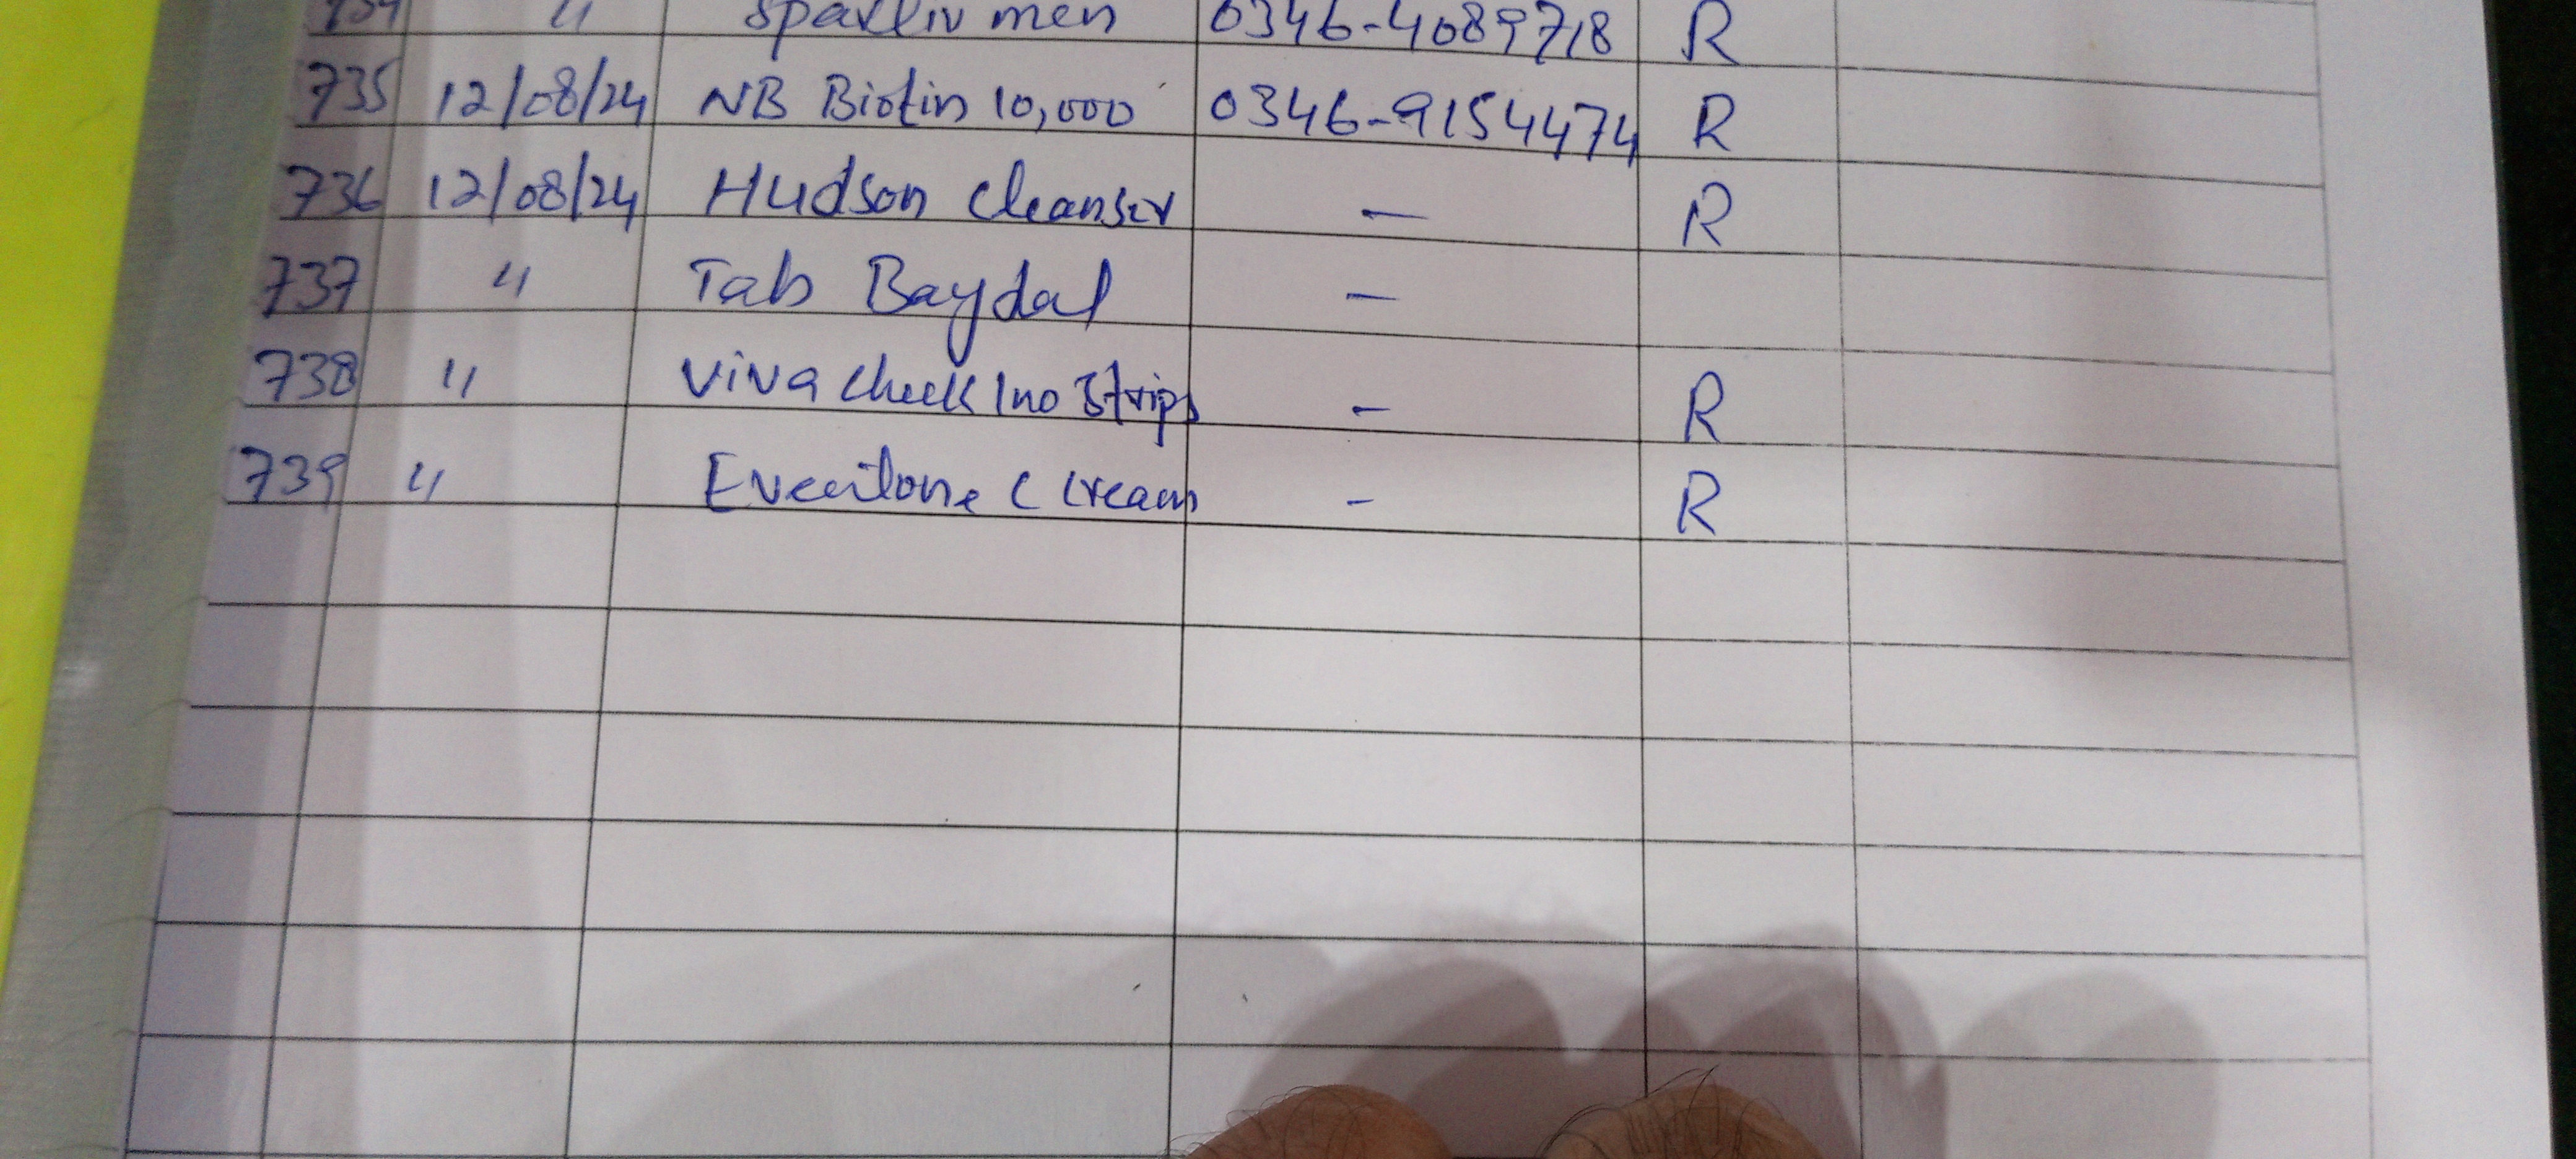 734 " Sparlliv men 0346-4089718 R
735 12/08/24 NB Biotin 10,000 0346-9154474 R
736 12/08/24 Hudson Cleanser - R
737 " Tab Baydal -
738 " Viva Check Ino Strips - R
739 " C Cream - R